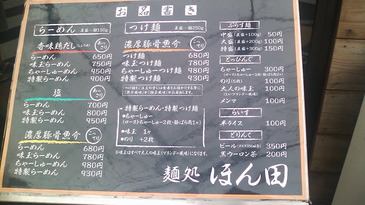 お品書き
らーめん
香味鶏だし
らーめん 650円
味玉らーめん 750円
ちゃーしゅーめん 950円
特製らーめん 900円
塩
らーめん 700円
味玉らーめん 800円
特製らーめん 950円
濃厚豚骨魚介
らーめん 680円
味玉らーめん 780円
ちゃーしゅーめん 980円
特製らーめん 930円
つけ麺
濃厚豚骨魚介
つけ麺 680円
味玉つけ麺 780円
ちゃーしゅーつけ麺 980円
特製つけ麺 930円
特製らーめん・特製つけ麺
●ちゃーしゅー
●味玉 1ヶ
●のり +2枚
中盛 50円
大盛 100円
特盛 150円
とっぴんぐ
ちゃーしゅー 300円
大人の味玉 100円
のり 100円
メンマ 100円
らいす
半ライス 100円
どりんく
ビール 350円
黒ウーロン茶 200円
麺処 ほん田